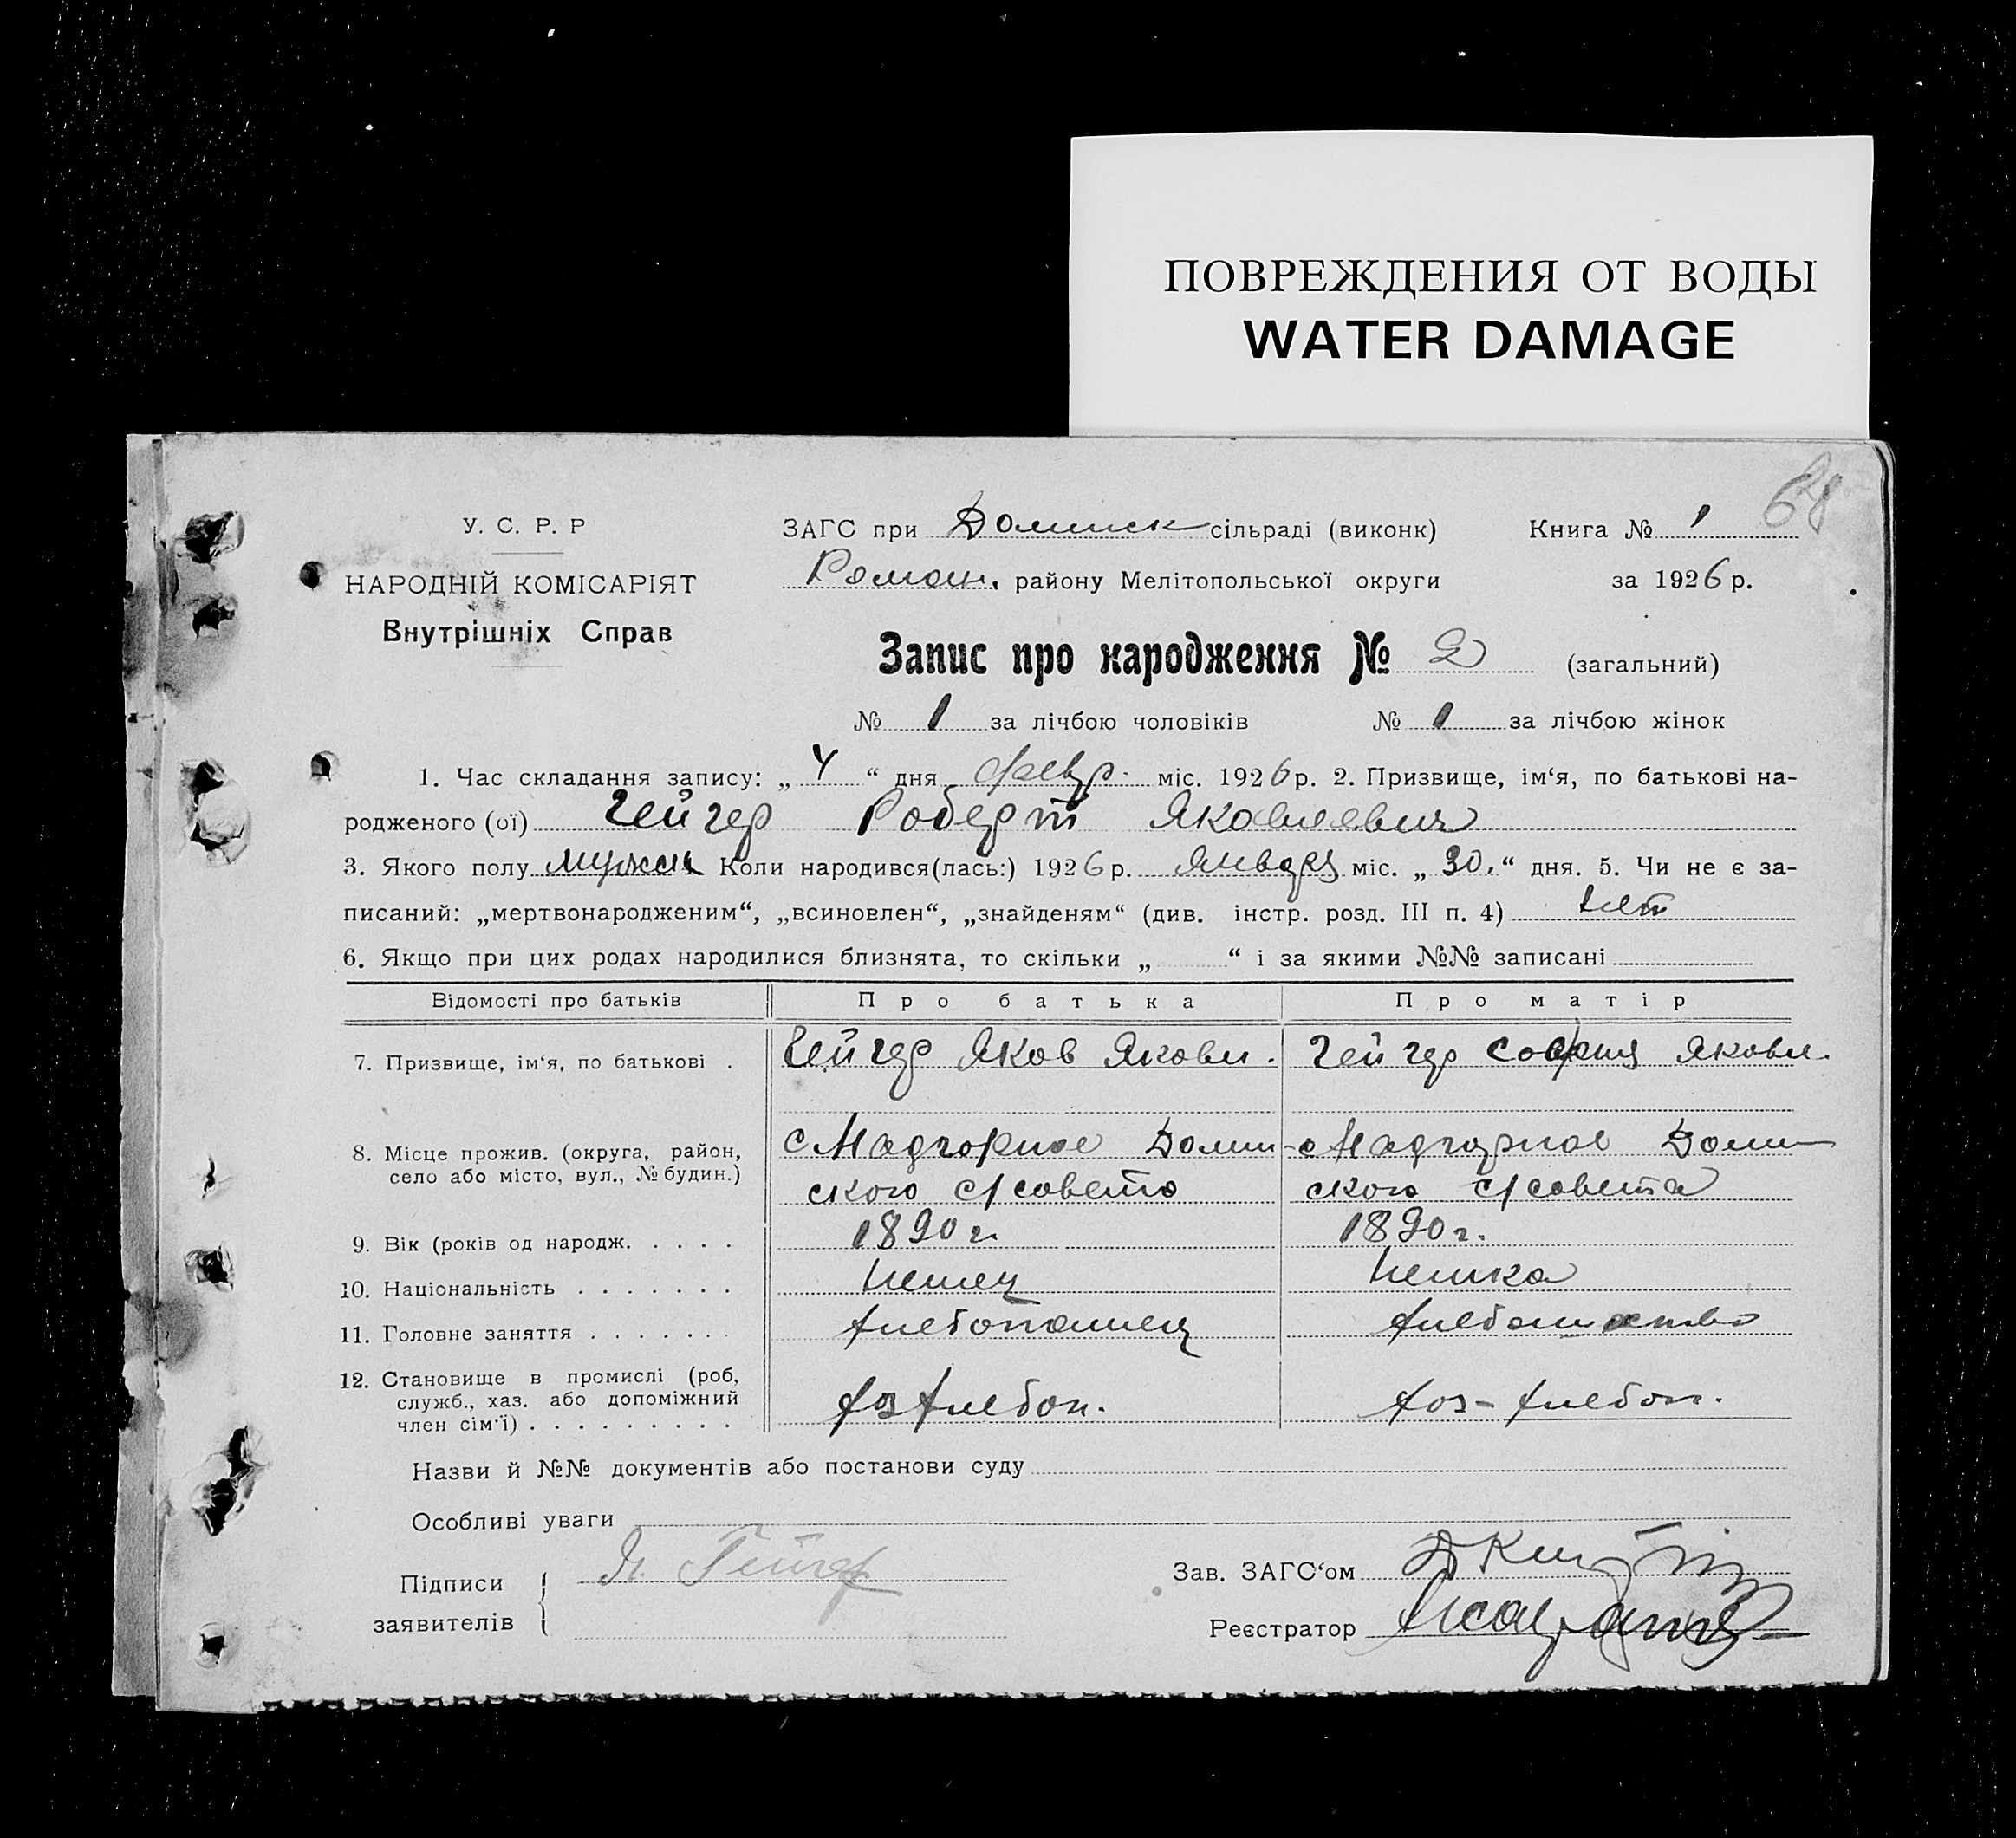 ПОВРЕЖДЕНИЯ ОТ ВОДЫ
WATER DAMAGE
68
У. С. Р. Р
НАРОДНІЙ КОМІСАРІЯТ
Внутрішніх Справ
ЗАГС при сільраді (виконк) Книга № 1
Роман. району Мелітопольської округи за 1926 р.
Запис про народження № 2 (загальний)
№ 1 за лічбою чоловіків № 1 за лічбою жінок
1. Час складання запису: „ 4 “ дня февр. міс. 1926 р. 2. Призвище, ім‘я, по батькові на-
родженого (ої) Гейгер Роберт Яковлевич
3. Якого полу мужск Коли народився(лась:) 1926 р. Января міс. „ 30. “ дня. 5. Чи не є за-
писаний: „мертвонародженим“, „всиновлен“, „знайденям“ (див. інстр. розд. III п. 4) нет
6. Якщо при цих родах народилися близнята, то скільки „ “ і за якими №№ записані
Відомості про батьків Про батька Про матір
7. Призвище, ім‘я, по батькові . Гейгер Яков Яковл. Гейгер София Яковл.
8. Місце прожив. (округа, район, село або місто, вул., № будин.) с Надгорное с Надгорное
ского с/совета ского с/совета
9. Вік (років од народж. . . . . 1890 г. 1890 г.
10. Національність . . . . . . . немец немка
11. Головне заняття . . . . . . . хлебопашец хлебопашество
12. Становище в промислі (роб, служб., хаз. або допоміжний член сім‘ї) . . . . . . . . . хоз хлебоп. хоз- хлебоп.
Назви й №№ документів або постанови суду
Особливі уваги
Підписи заявителів Я. Гейгер
Зав. ЗАГС‘ом
Реєстратор